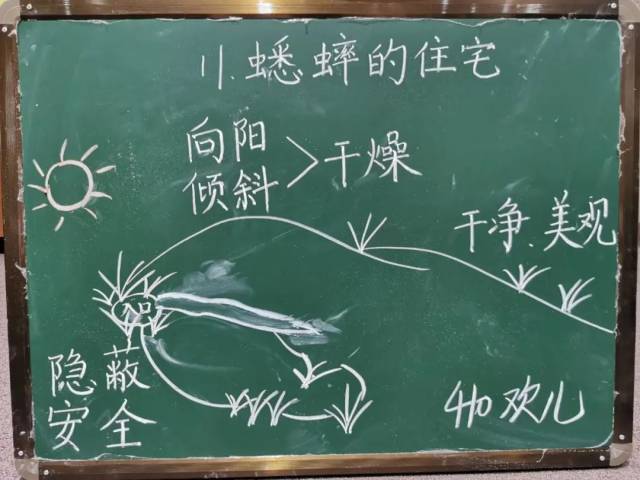 11.蟋蟀的住宅
向阳
倾斜>干燥
干净、美观
隐蔽
安全
410 欢儿